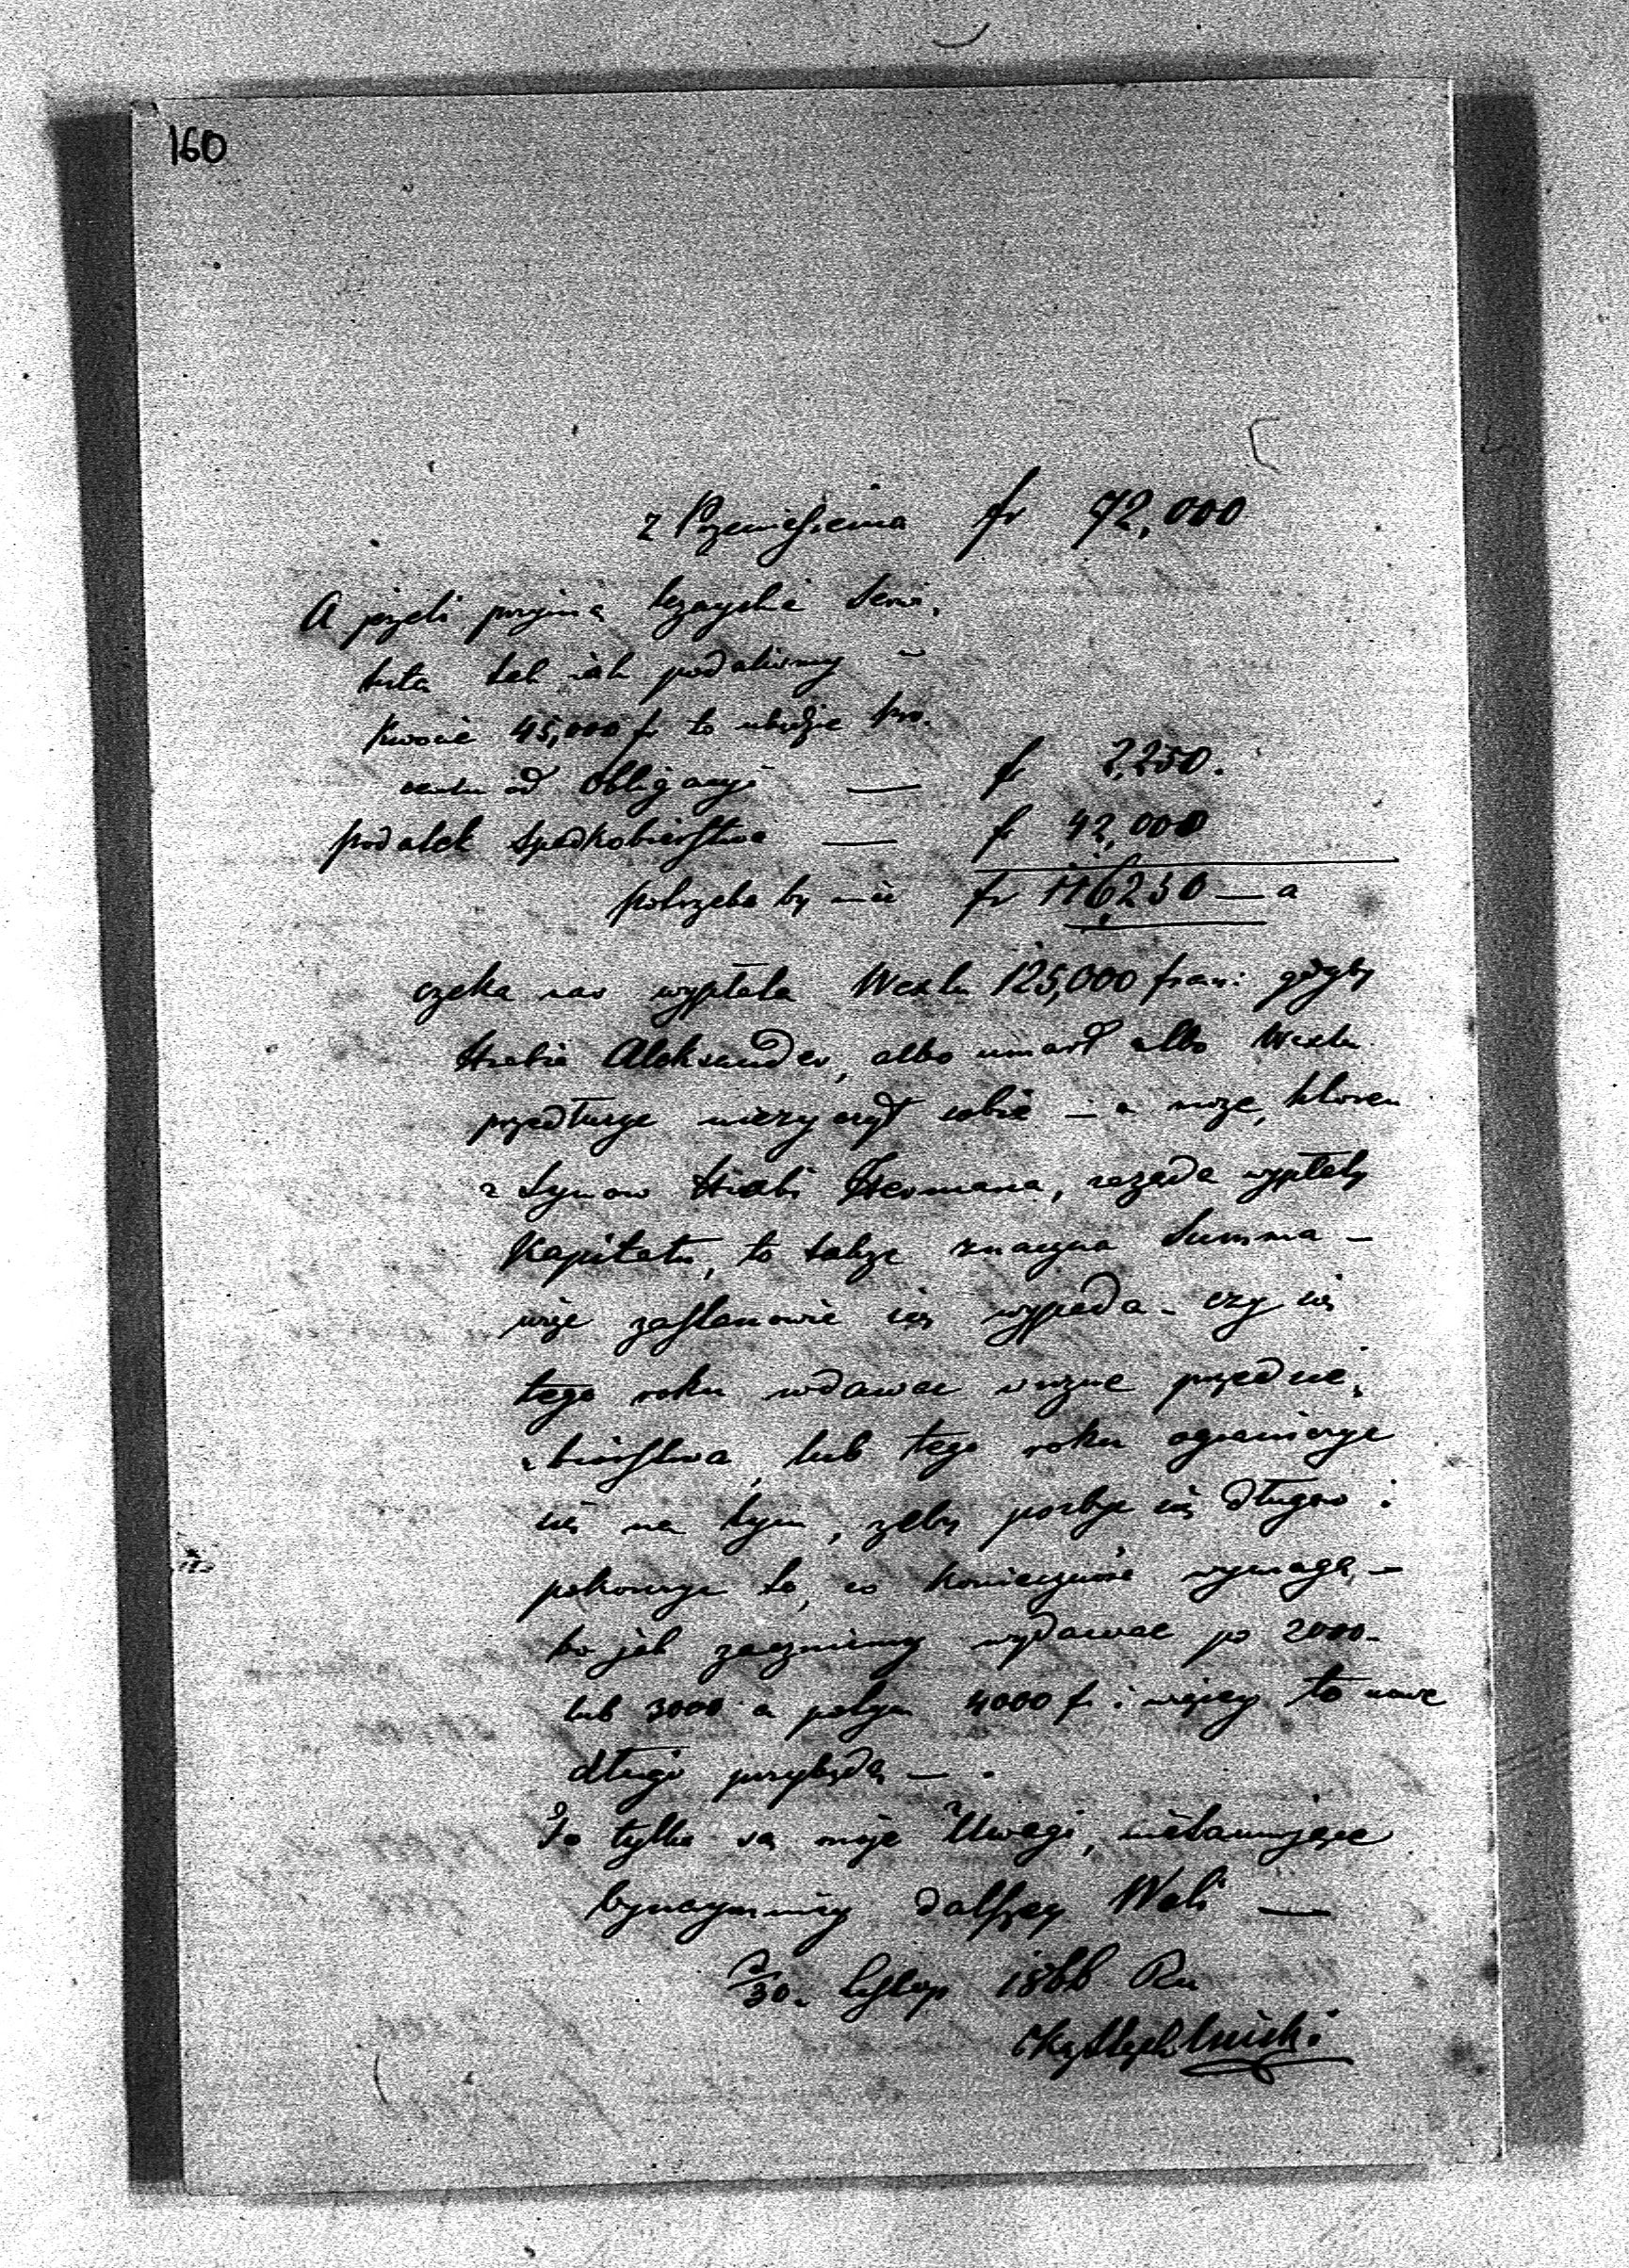 160
z Przeniesienia fr 72,000
A jeżeli przyjmą leżayskie Serwi,
tuta tak jak podaliśmy w
kwocie 45,000 fr to ubędzie pro.
centu od Obligacyi — fr 2,250.
podatek Spadkobierstwa — fr 42,000
potrzeba by więc fr 116,250 — a
czeka nas wypłata Wexlu 125,000 fran: gdyby
Hrabia Aleksander, albo umarł albo Wexlu
przedłużyć nieżyczył sobie — a może, który
z Synow Hrabi Hermana, zażąda wypłaty
Kapitału, to także znaczna Summa —
więc zastanowić się wypada — czy się
tego roku wdawać w różne przedsię,
biorstwa, lub tego roku ograniczyć
się na tym, żeby pozbyć się długow i
pokończyć to, co konieczność wymaga, —
bo jak zaczniemy wydawać po 2000 —
lub 3000 a potym 4000 fr i więcej to nowe
długi przybędą — .
To tylko są moje Uwagi, nietamujące
bynaymniey dalszey Woli —
30. Listop 1866 Ru